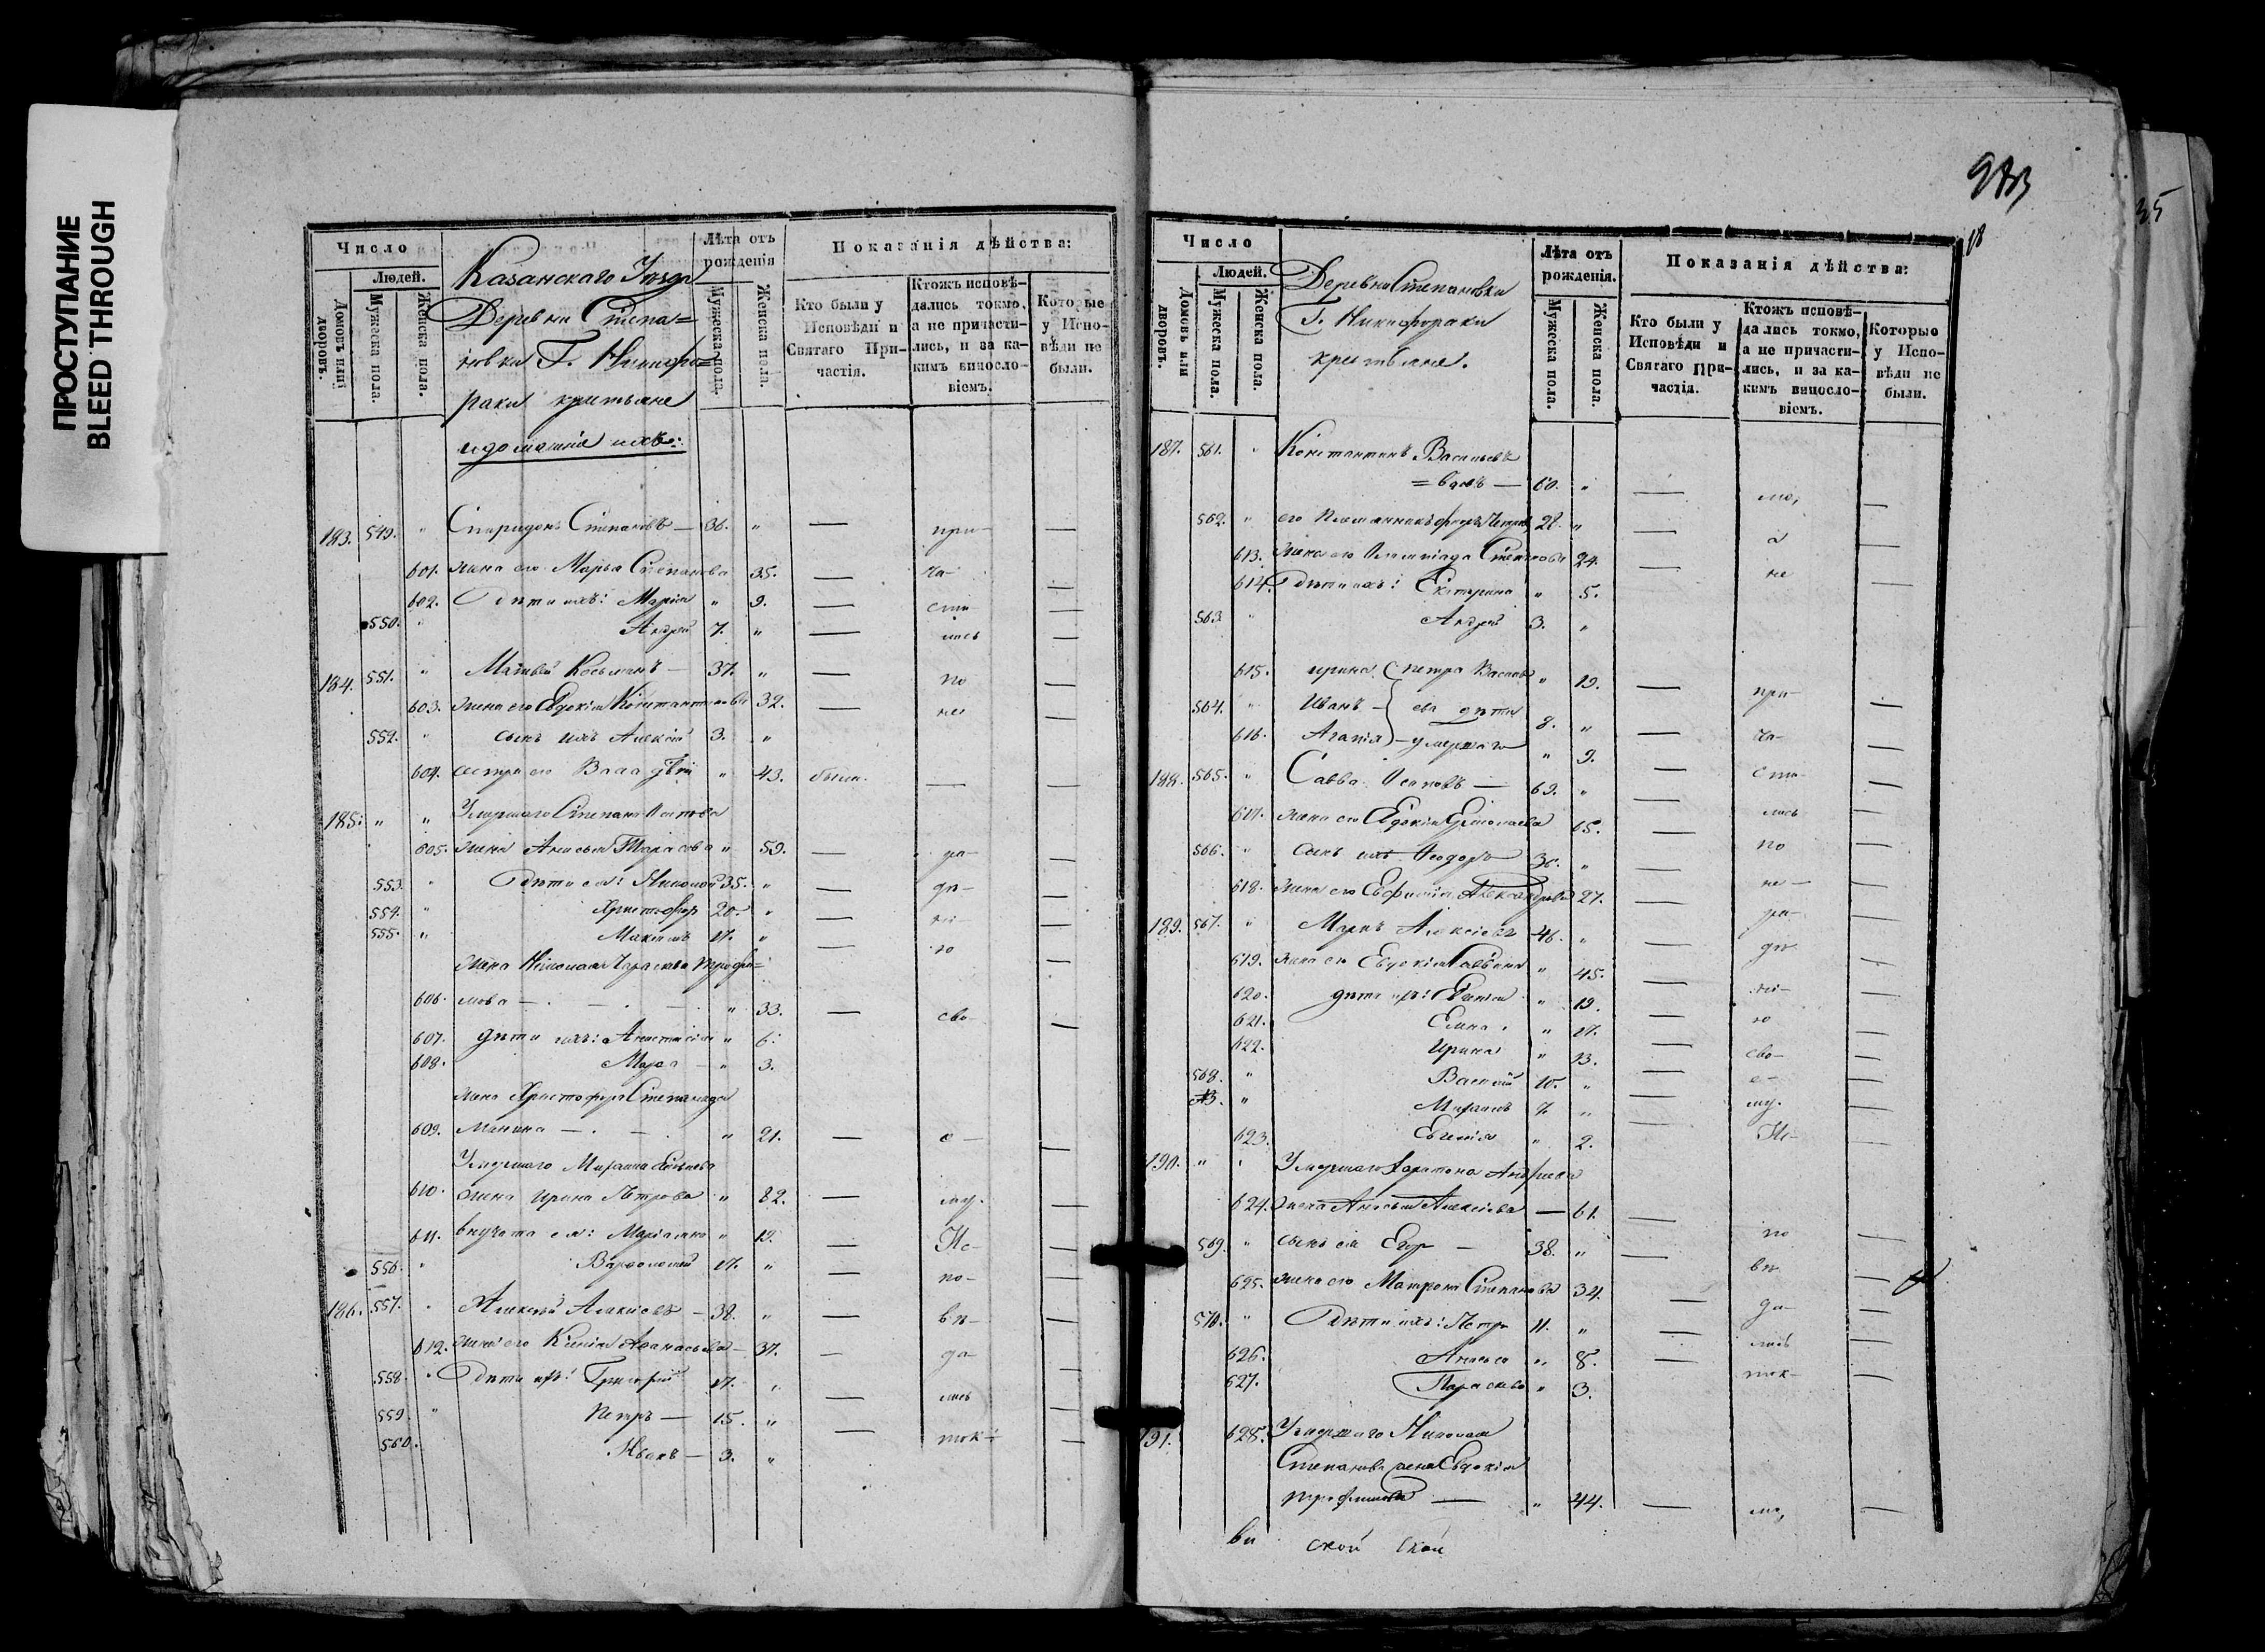 ПРОСТУПАНИЕ
BLEED THROUGH
Число
Людей.
Домовъ или дворовъ.
Мужеска пола.
Женска пола.
Казанскаго Уѣзда
Деревни Степа=
новки Г. Никифо=
раки крестьяне
и домашніе ихъ:
Лѣта отъ рожденія
Мужеска пола.
Женска пола.
Показанія дѣйства:
Кто были у Исповѣди и Святаго Причастія.
Ктожъ исповѣдались токмо, а не причастились, и за какимъ винословіемъ.
Которые у Исповѣди не были.
183. 549. " Спиридонъ Степановъ — 36. " — при- —
601. жена его Марья Степанова 35. — ча- —
602. Дѣти ихъ: Марія " 9. — сти —
550. " Андрей 7. " — лись —
184. 551. " Матвѣй Косьминъ — 37. " — по —
603. жена его Евдокія Константинова 32. — не —
552. " сынъ ихъ Алексѣй 3. "
604. сестра его " 43. была. — —
185. " " Умершаго Степана Осипова
605. жена Анисья Тарасова " 59. — ра- —
553. " Дѣти ея: Николай 35. " — дѣ- —
554. " Христофоръ 20. " — ні- —
555. " Максимъ 17. " — ю —
жена Николая Параскева Трофи=
606. мова — . — . — " 33. — сво- —
607. дѣти ихъ: Анастасія " 6.
608. Марья — " 3.
жена Христофора Степанида
609. " 21. — е — —
Умершаго
610. жена Ирина Петрова " 82. — му. —
611. внучата ея: Маріамна " 19. — Ис- —
556. " Варѳоломей 17. " — по- —
186. 557. " Алексѣй Алексѣевъ — 38. " — вѣ- —
612. жена его Ксенія Аѳанасьева — 37. — да- —
558. " Дѣти ихъ: Григорій 17. " — лись —
559. " Петръ — 15. " — ток- —
560. Иванъ — 3. "
18
35
Число
Людей.
Домовъ или дворовъ.
Мужеска пола.
Женска пола.
Деревни Степановки
Г. Никифораки
крестьяне.
Лѣта отъ рожденія.
Мужеска пола.
Женска пола.
Показанія дѣйства:
Кто были у Исповѣди и Святаго Причастія.
Ктожъ исповѣдались токмо, а не причастились, и за какимъ винословіемъ.
Которые у Исповѣди не были.
187. 561. " Константинъ
60. " — мо, —
562. " его племянникъ Петровъ " — а —
613. жена его Олимпіада Степанова 24. — не —
614. Дѣти ихъ: Екатерина " 5.
563. " Андрей 3. "
615. Ирина петра " 19. — при- —
564. " Иванъ — дѣти 8. " — ча- —
616. Агапія — умершаго " 9. — сти- —
188. 565. " Савва Осиповъ — 69. " — лись —
617. жена его Евдокія Ермолаева 65. — по —
566. " сынъ ихъ Ѳеодоръ 36. " — не- —
618. жена его Евфимія Александрова 27. — ра- —
189. 567. " Маркъ Алексѣевъ 46. " — дѣ- —
619. жена его Евдокія " 45. — ні- —
620. дѣти ихъ: " 19. — ю —
621. Елена. " 17. — сво- —
622. Ирина " 13. — е- —
568. " Василій 10. " — му. —
" 7. " — Ис- —
623. Евгенія " 2.
190. " " Умершаго Харитона Андреева
624. жена Анисья Алексѣева — 61. — по —
569. " сынъ ея Егоръ — 38. " — вѣ- —
625. жена его Матрона Степанова 34. — да- —
570. " Дѣти ихъ: Петръ 11. " — лись —
626. Анисья " 8. — ток- —
627. Параскева " 3.
191. 628. Умершаго Николая
Степанова жена Евдокія
Трофимова — " 44. — мо, —